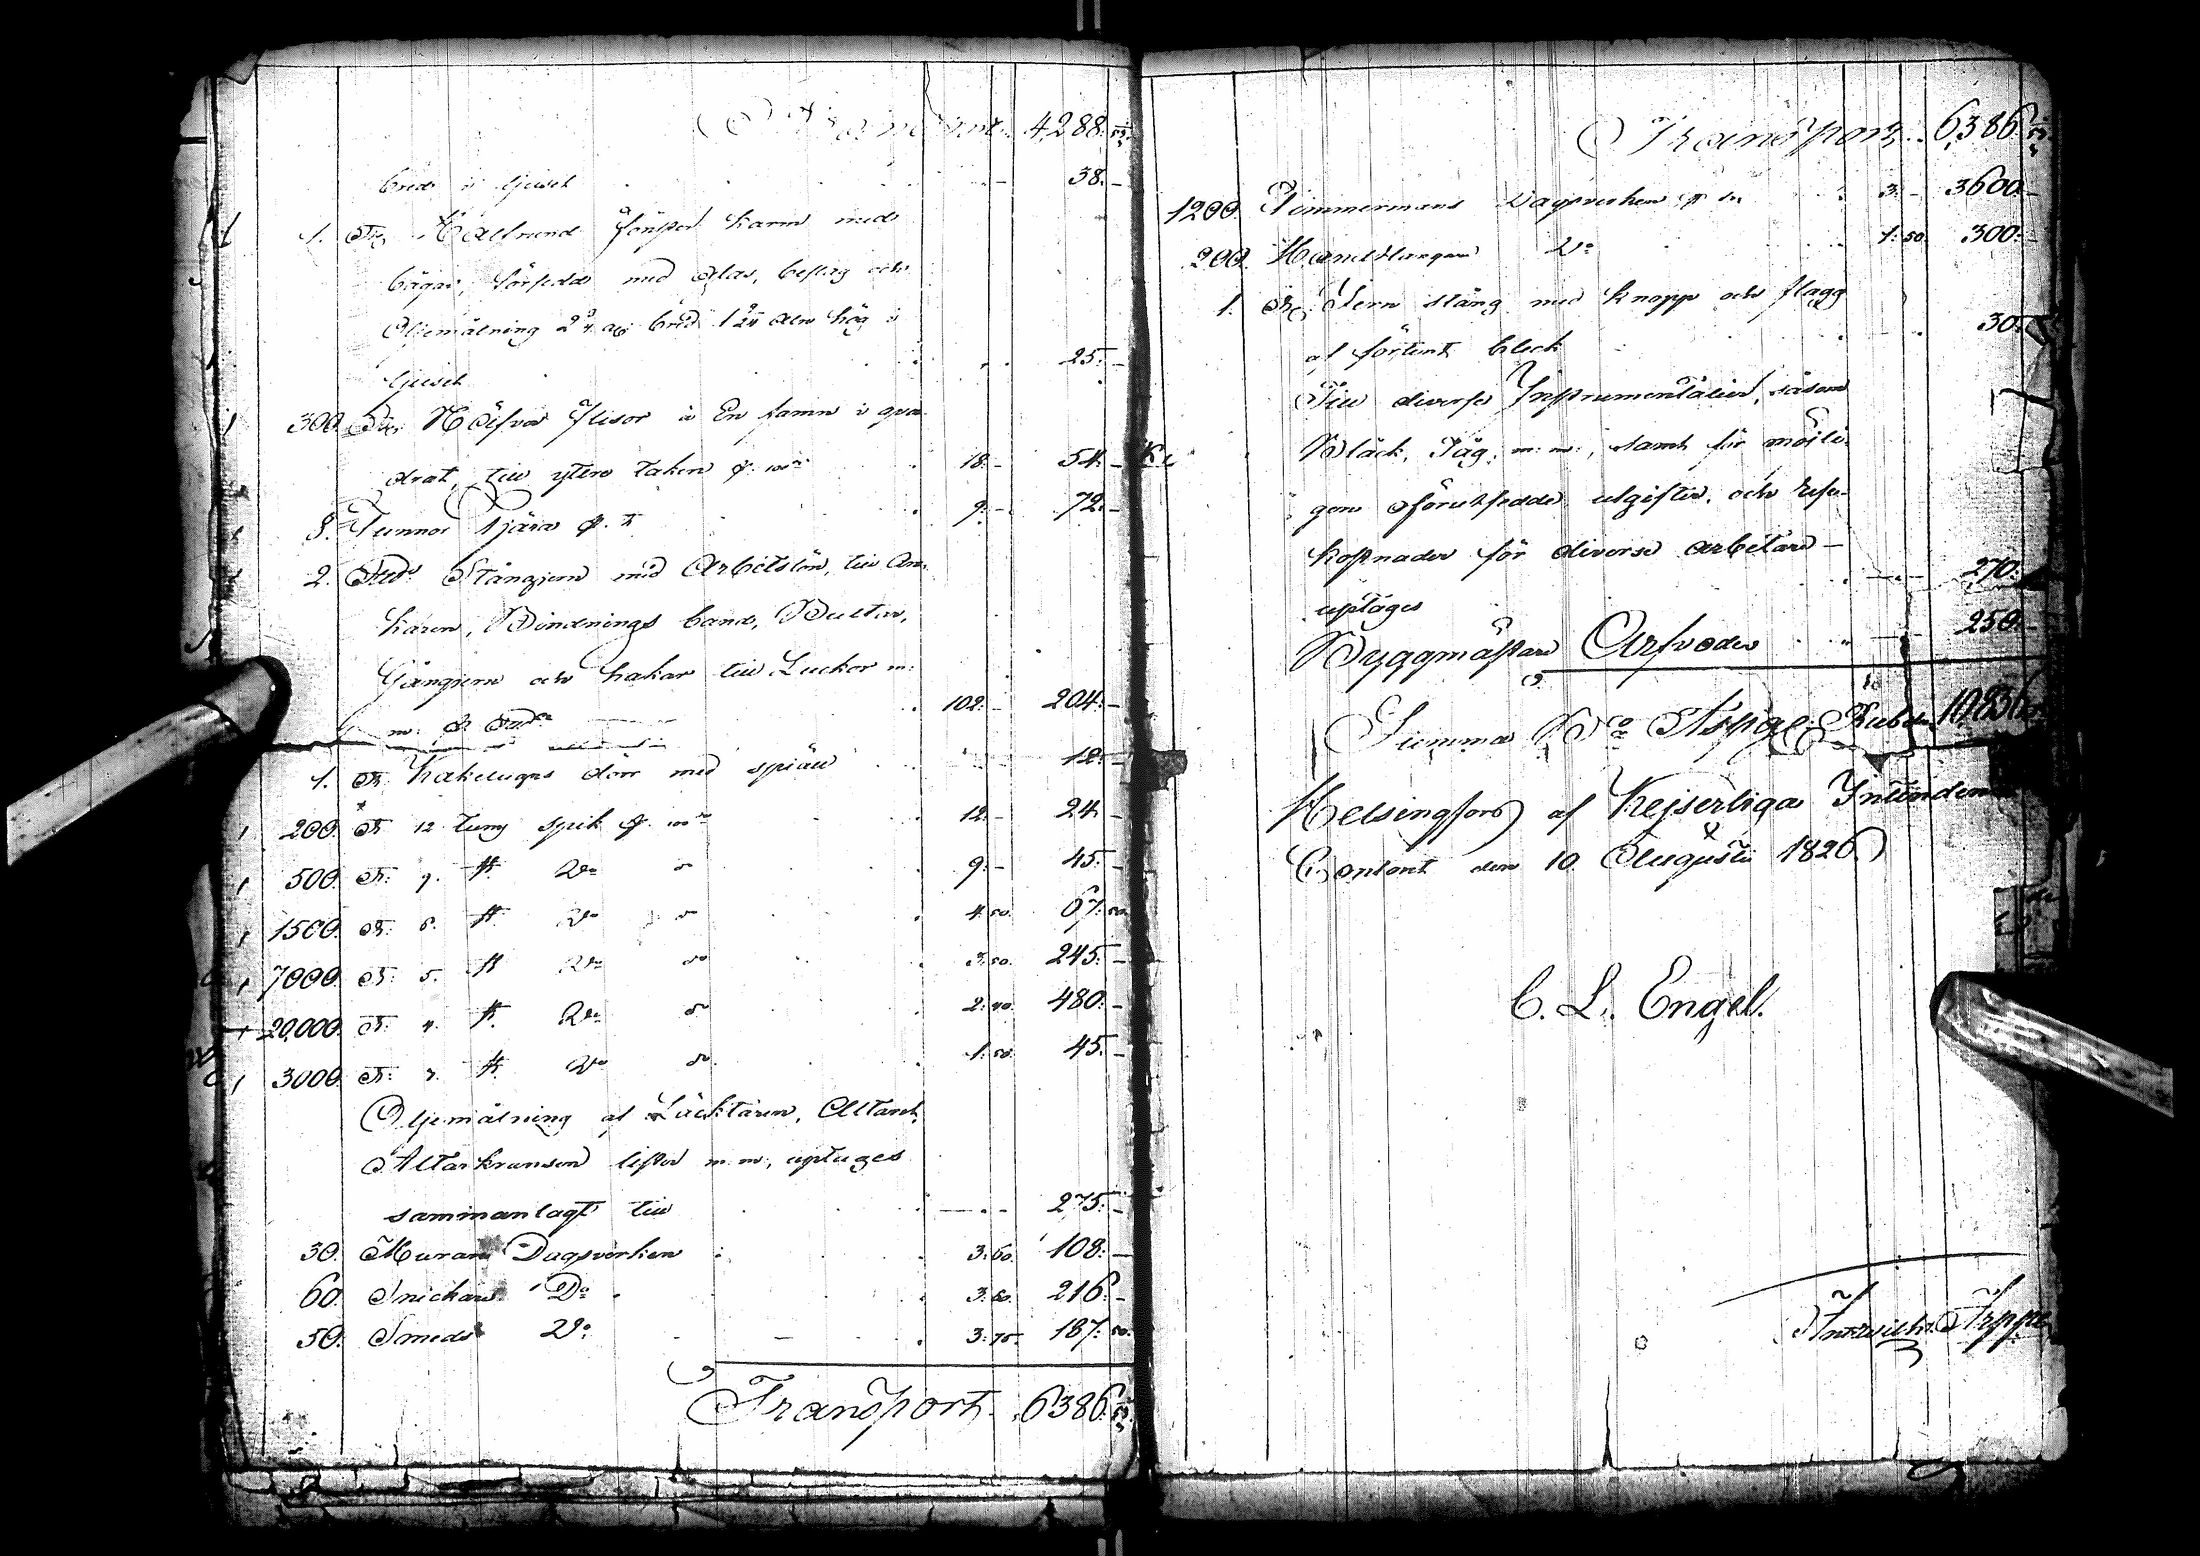 Transport 4288.
bred i ljuset 38. -
1. St. Halfrund fönster karm med
bågar, försedd med glas, beslag och
Oljemålning bred aln hög i
ljuset 25. -
300. St. Näfver flisor à En famn i qva-
drat, till yttre taken 18. - 54. -
8. Tunnor Tjära 9. - 72. -
2. Stångjern med Arbetslön, till An-
karen, Bindnings band, Bultar,
Gångjern och hakar till Luckor m:
m: 102. - 204. -
1. St. Kakelugns dörr med spjäll 12. -
200. St. 12 tums spik 12. - 24. -
500. St. 9. Do 9. - 45. -
1500. St. 6. Do 4. 50. 67. 50.
7000. St. 5. Do 3. 50. 245. -
20,000. St. 4. Do 2. 40. 480. -
3000. St. 3. Do 1. 50. 45. -
Oljemålning af Läcktaren, Altaret,
Altarkransen lister m. m., uptages
sammanlagt till 275. -
30. Murare Dagsverken 3. 60. 108. -
60. Snickare Do 3. 60. 216. -
50. Smeds Do 3. 75. 187. 50.
Transport 6386.
Transport 6386.
1200. Timmermans Dagsverken 3. - 3600. -
200. Handtlangare Do 1. 50. 300. -
1. St. Jern stång med knopp och flagg
af förtent bleck 30. -
Till diverse Instrumentalier, såsom
Bläck, Tåg m: m:, samt för möjli-
gen oförutsedde utgifter, och rese-
kostnader för diverse arbetare -
uptages 270. -
Byggmästare Arfvode 250. -
Summa Bco Assign: Rubel 10836
Helsingfors af Kejserliga Intendents
Contoret den 10 Augusti 1826.
C. L. Engel.